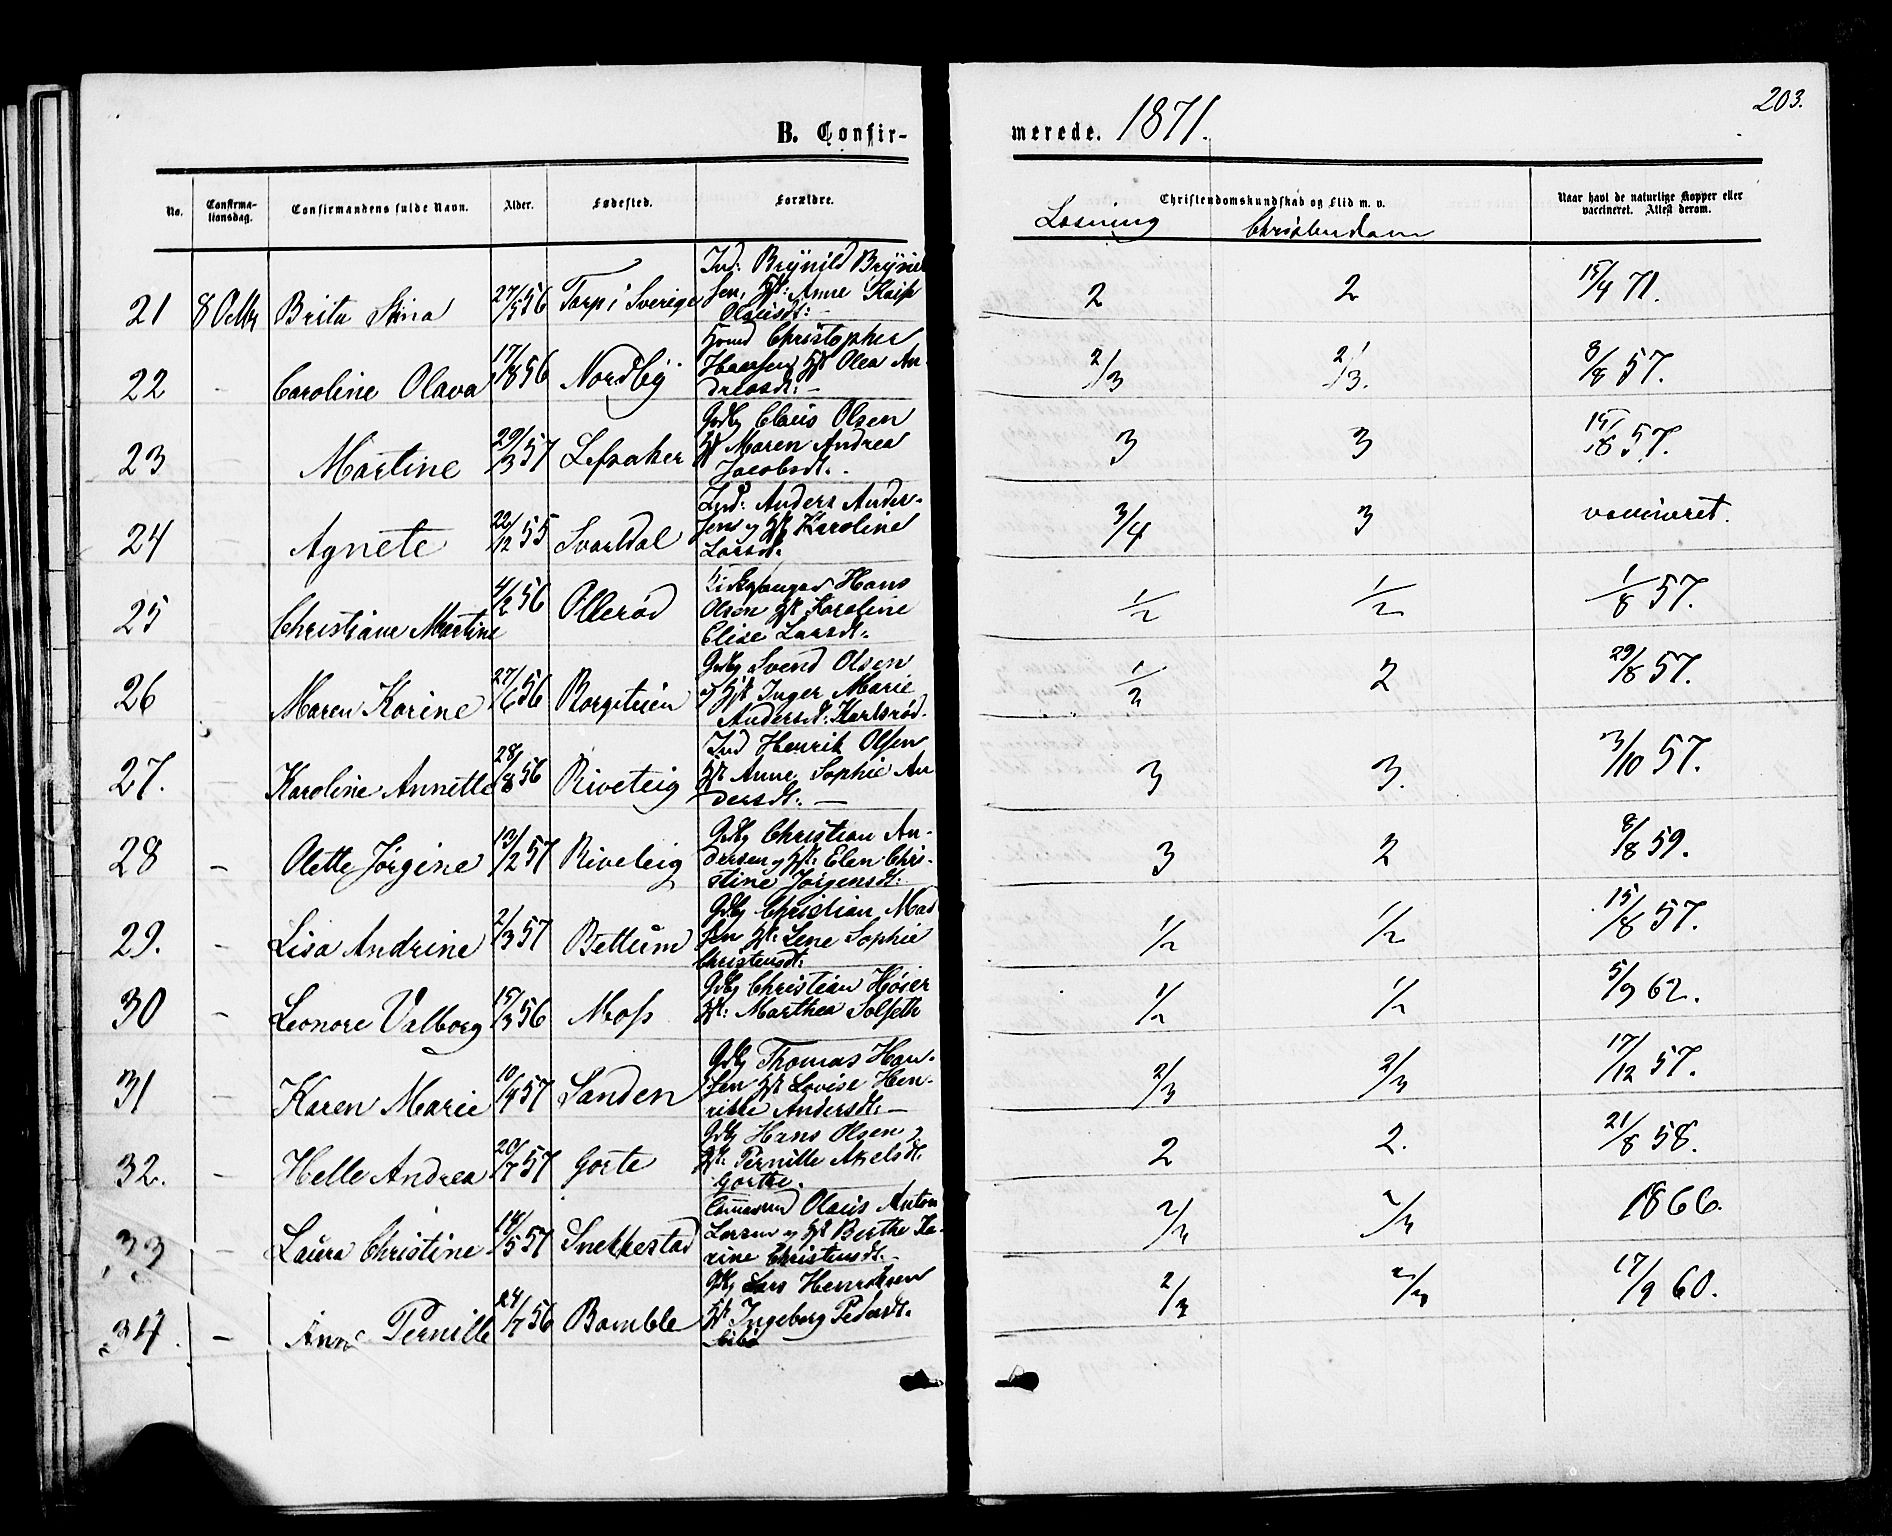 203.
B. Confir- merede. 1871.
No. Confirma-tionsdag. Confirmandens fulde Navn. Alder. Fødested. Forældre. Christendomskundskab og Flid m. v. Naar havt de naturlige Kopper eller vaccineret. Attest derom.
Læsning Christendom
Ind: Brynild Bryniel
21 8 Octbr Brita Stina 27/5 56 Torp i Sverige sen, Hst: Anne Kaisa 2 2 15/4 71.
Olausdt:
Christopher
22 - Caroline Olava 17/8 56 Nordby Hansen Hst Olea An- 2/3 2/3. 8/8 57.
dreasdt: -
Gdbr Claus Olsen
23 Martine 29/3 57 Lefsaker Hst Maren Andrea 3 3 15/8 57.
Jacobsdt.
Ind: Anders Ander-
24 Agnete 22/12 55 Svartdal sen og Hst Karoline 3/4 3 vaccineret.
Larsdt.
Hans
25 Christiane Martine 4/2 56 Ollerød Olsen Hst Karoline 1/2 1/2 1/8 57.
Elise Larsdt:
Gdbr Svend Olsen
26 Maren Karine 27/6 56 Borgeteien og Hst Inger Marie 1/2 2 29/8 57.
Andersdt. Karlsrød.
Ind Henrik Olsen
27. Karoline Annette 28/8 56 Riveteig Hst Anne Sophie An 3 3. 3/10 57.
dersdt: -
Gdbr Christian An-
28 - Olette Jørgine 13/2 57 Riveteig dersen og Hst: Elen Chri- 3 2 8/8 59.
stine Jørgensdt:
Gdbr Christian Mad
29. - Lisa Andrine 2/3 57 Bettum sen Hst: Lene Sophie 1/2 1/2 15/8 57.
Christensdt:
Gdbr Christian Høier
30 - Leonore Valborg 15/3 56 Moss Hst: Marthea Solseth 1/2 1/2 5/9 62.
Gdbr Thomas Han-
31 - Karen Marie 10/4 57 Sanden sen Hst Lovise Hen- 2/3 2/3 17/12 57.
riette Andersdt: -
Gdbr Hans Olsen og
32. - Helle Andrea 20/7 57 Gorte Hst: Pernille Axelsdt. 2 2. 21/8 58.
Gorthe.
Olaus Anton
33 - Laura Christine 14/5 57 Snekkestad Larsen og Hst Berthe Ka- 2/3 2/3 1866.
rine Christensdt. -
Gdbr Lars Henriksen
34. - Anne Pernille 24/7 56 Bamble Hst Ingeborg Pedersdt. 2/3 2/3 17/9 60.